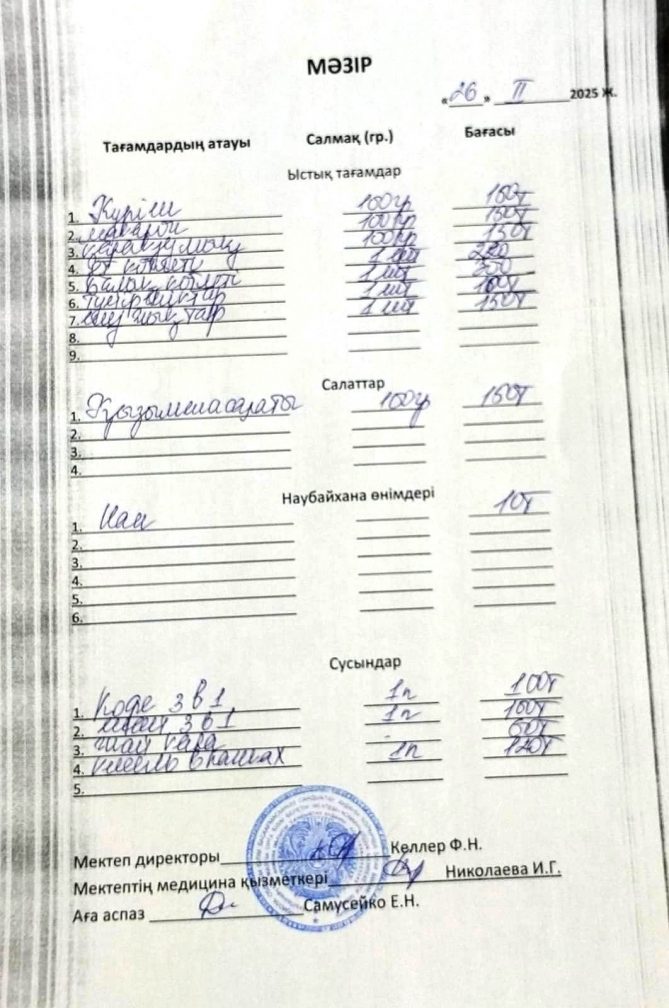 МӘЗІР
«26» II 2025 Ж.
Тағамдардың атауы Салмақ (гр.) Бағасы
Ыстық тағамдар
1. Күріш 100гр 150т
2. макарон 100гр 150т
3. қарақұмық 100гр 150т
4. ет котлеті 1 шт 250
5. балық котлеті 1 шт 250
6. 1 шт 100т
7. 1 шт 150т
8.
9.
Салаттар
1. Қызылша салаты 100гр 150т
2.
3.
4.
Наубайхана өнімдері
1. Нан 10т
2.
3.
4.
5.
6.
Сусындар
1. Кофе 3 в 1 1п 100т
2. шай 3 в 1 1п 100т
3. шай қара 60т
4. кисель в пачках 1п 120т
5.
Мектеп директоры Келлер Ф.Н.
Мектептің медицина қызметкері Николаева И.Г.
Аға аспаз Самусейко Е.Н.